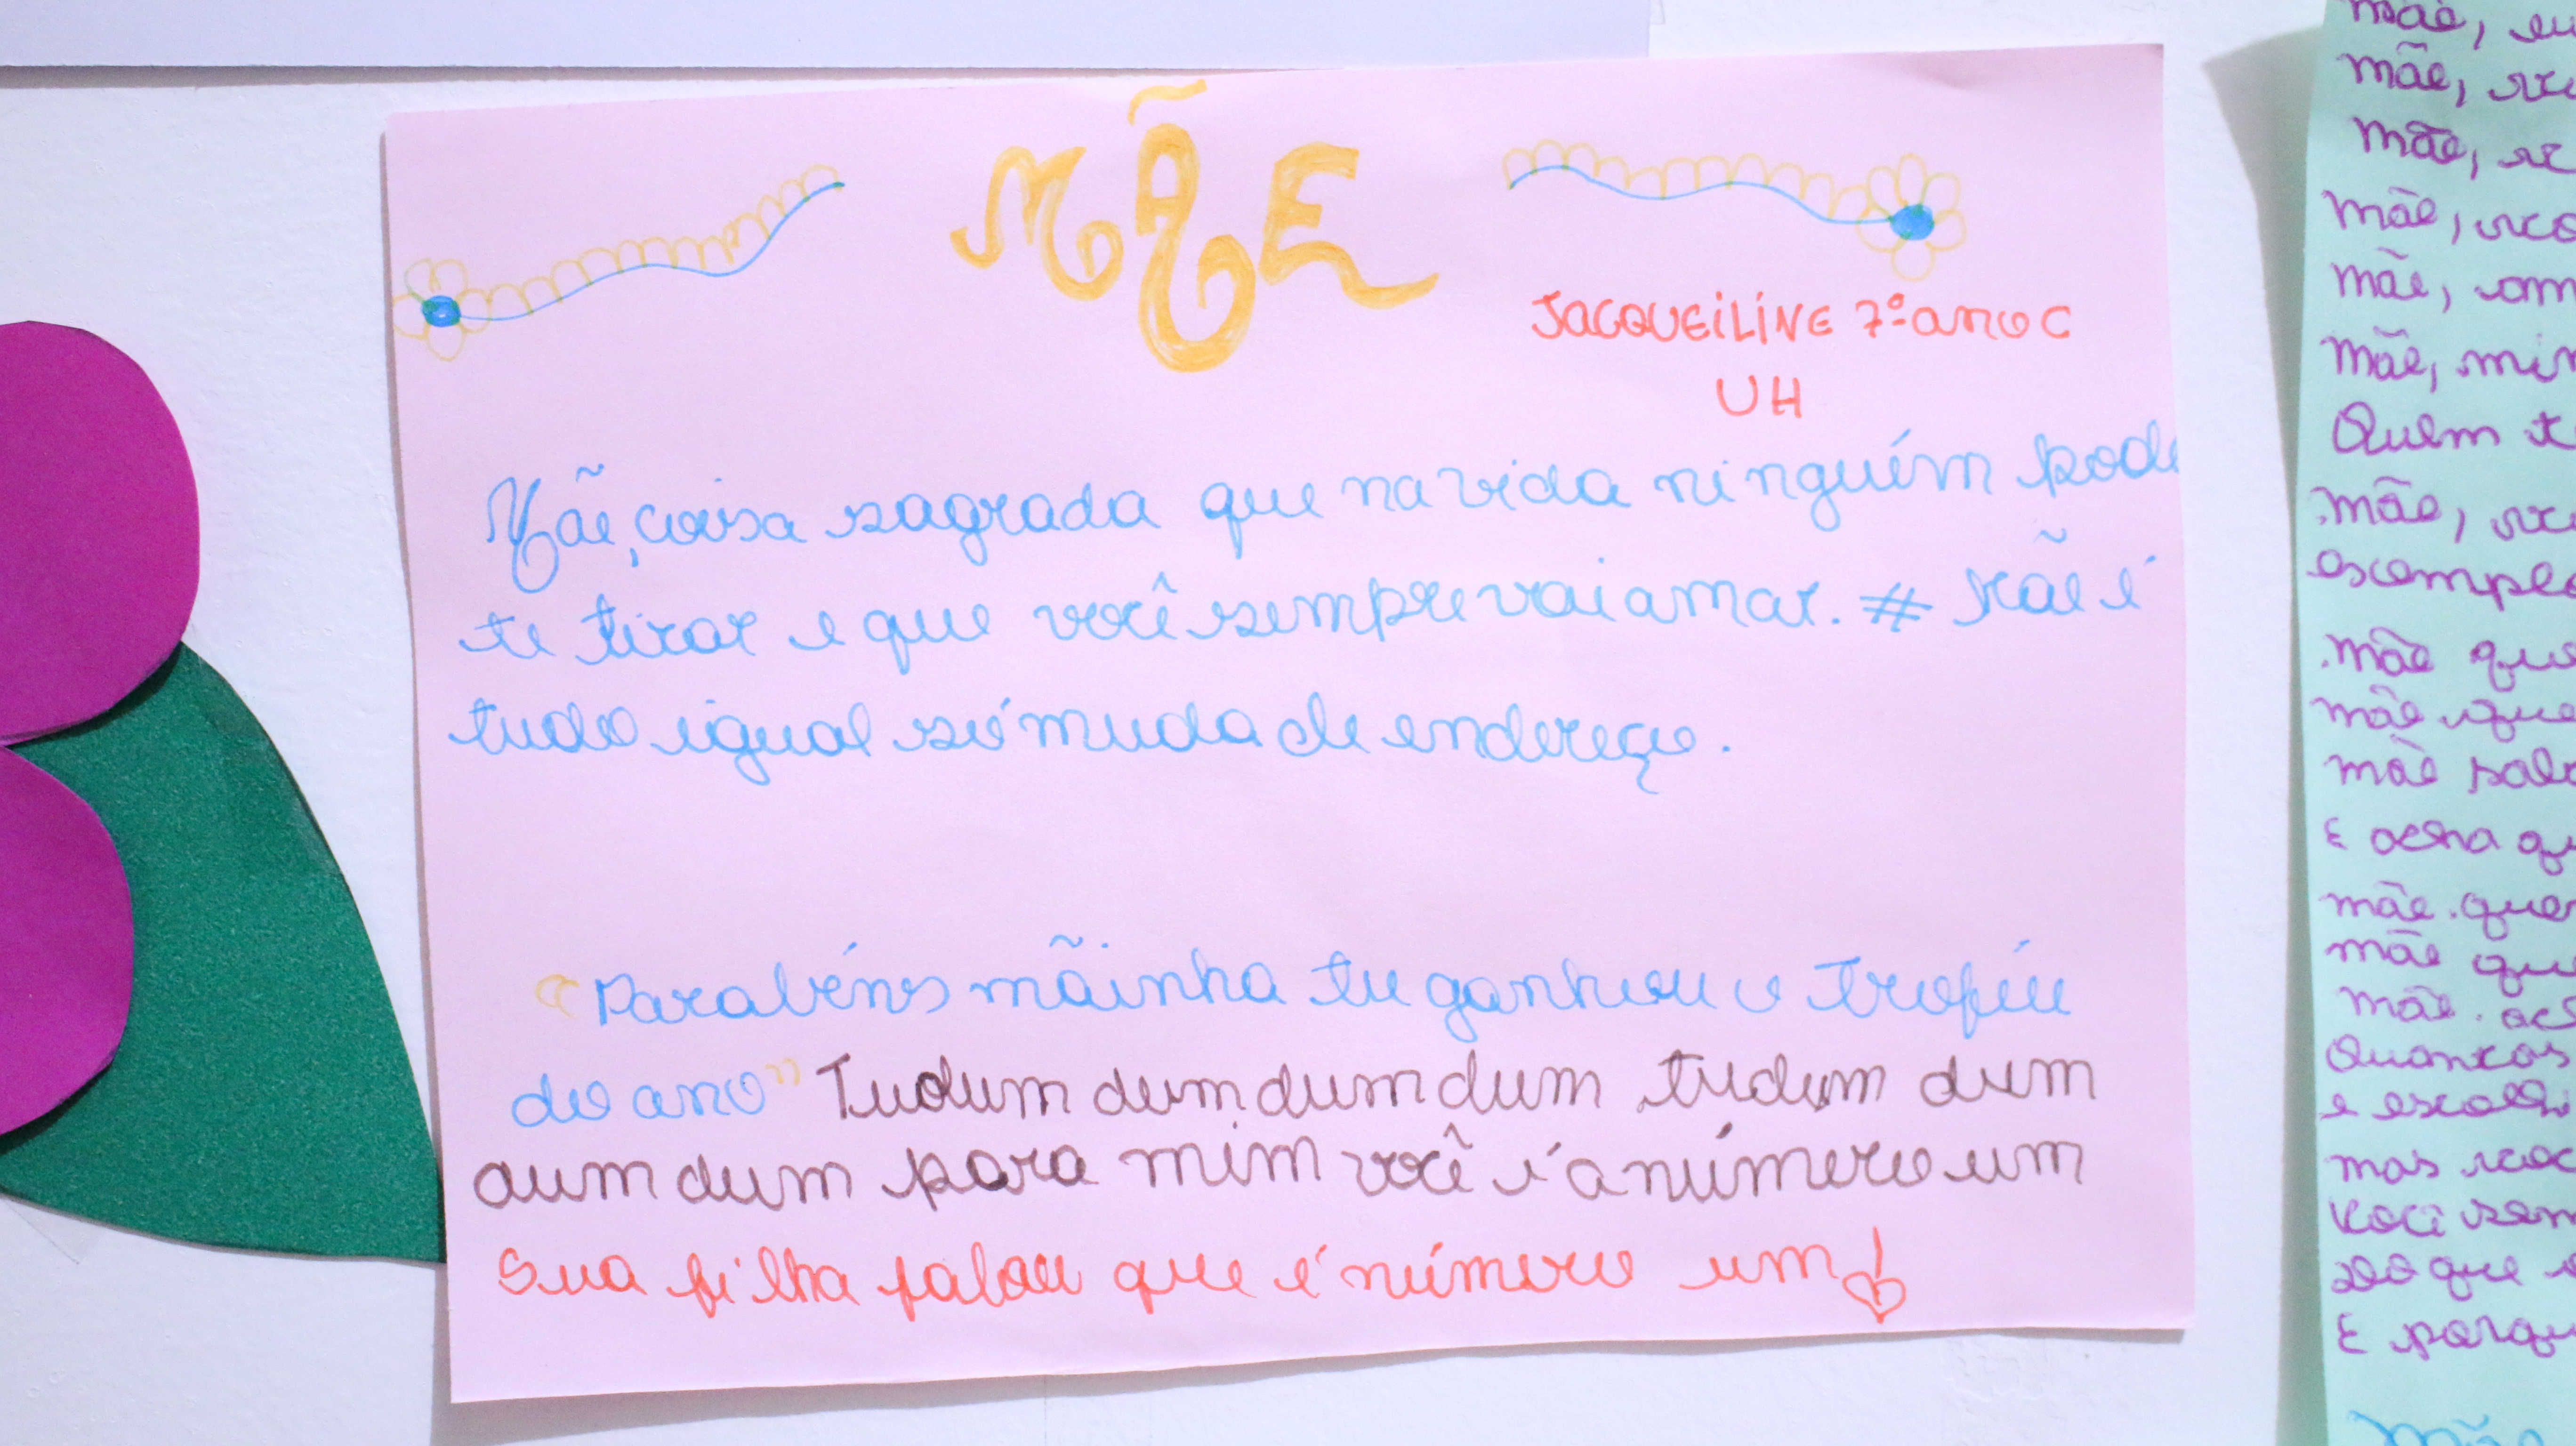 MÃE
JACQUEiLINE 7º ano C
UH
Mãe, coisa sagrada que na vida ninguém pode
te tirar e que você sempre vai amar. # Mãe é
tudo igual só muda de endereço.
"Parabéns mãinha tu ganhou o troféu
do ano" Tudum dum dum dum tudum dum
dum dum para mim você é a número um
Sua filha falou que é número um!
mãe, eu
mãe,
mãe,
mãe,
mãe, am
mãe, min
Quem te
mãe,
exemplo
mãe que
mãe que
mãe sab
E acha qu
mãe. quer
mãe que
mãe.
Quantas
e escolh
mas voc
Você sem
são que
E porqu